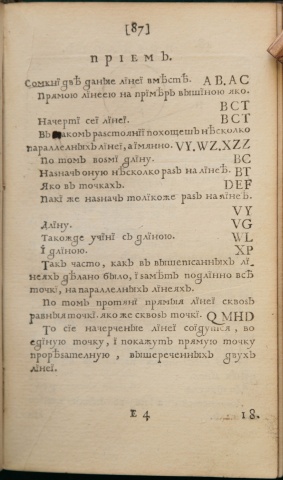 [87]
ПРІЕМЪ.
Сомкнї двѣ даные лїнеї вмѣстѣ. АВ.АС
Прямою лїнеею на прїмѣръ вышїною яко.
ВСТ
Начертї сеї лїнеї. ВСТ
Въ какомъ разстоянїї похощешъ нѣсколко
параллелныхъ лїнеї, а їмянно. VY. WZ. XZZ
По томъ возмї длїну. ВС
Назначъ оную нѣсколко разъ на лїнеѣ. ВТ
Яко въ точкахъ. DEF
Пакї же назначъ толїкоже разъ на лїнеѣ.
VY
Длїну. VG
Такожде учїнї съ длїною. WL
ї длїною. XP
Такъ часто, какъ въ вышепїсанныхъ лї-
неяхъ дѣлано было, ї замѣть подлїнно всѣ
точкї, на параллелныхъ лїнеяхъ.
По томъ протянї прямыя лїнеї сквозъ
равныя точкї. яко же сквозь точкї. QMHD
То сїе начерченые лїнеї соїдутся, во
едїную точку, ї покажутъ прямую точку
прорѣзателную, вышереченныхъ двухъ
лїнеї.
Е 4
18.